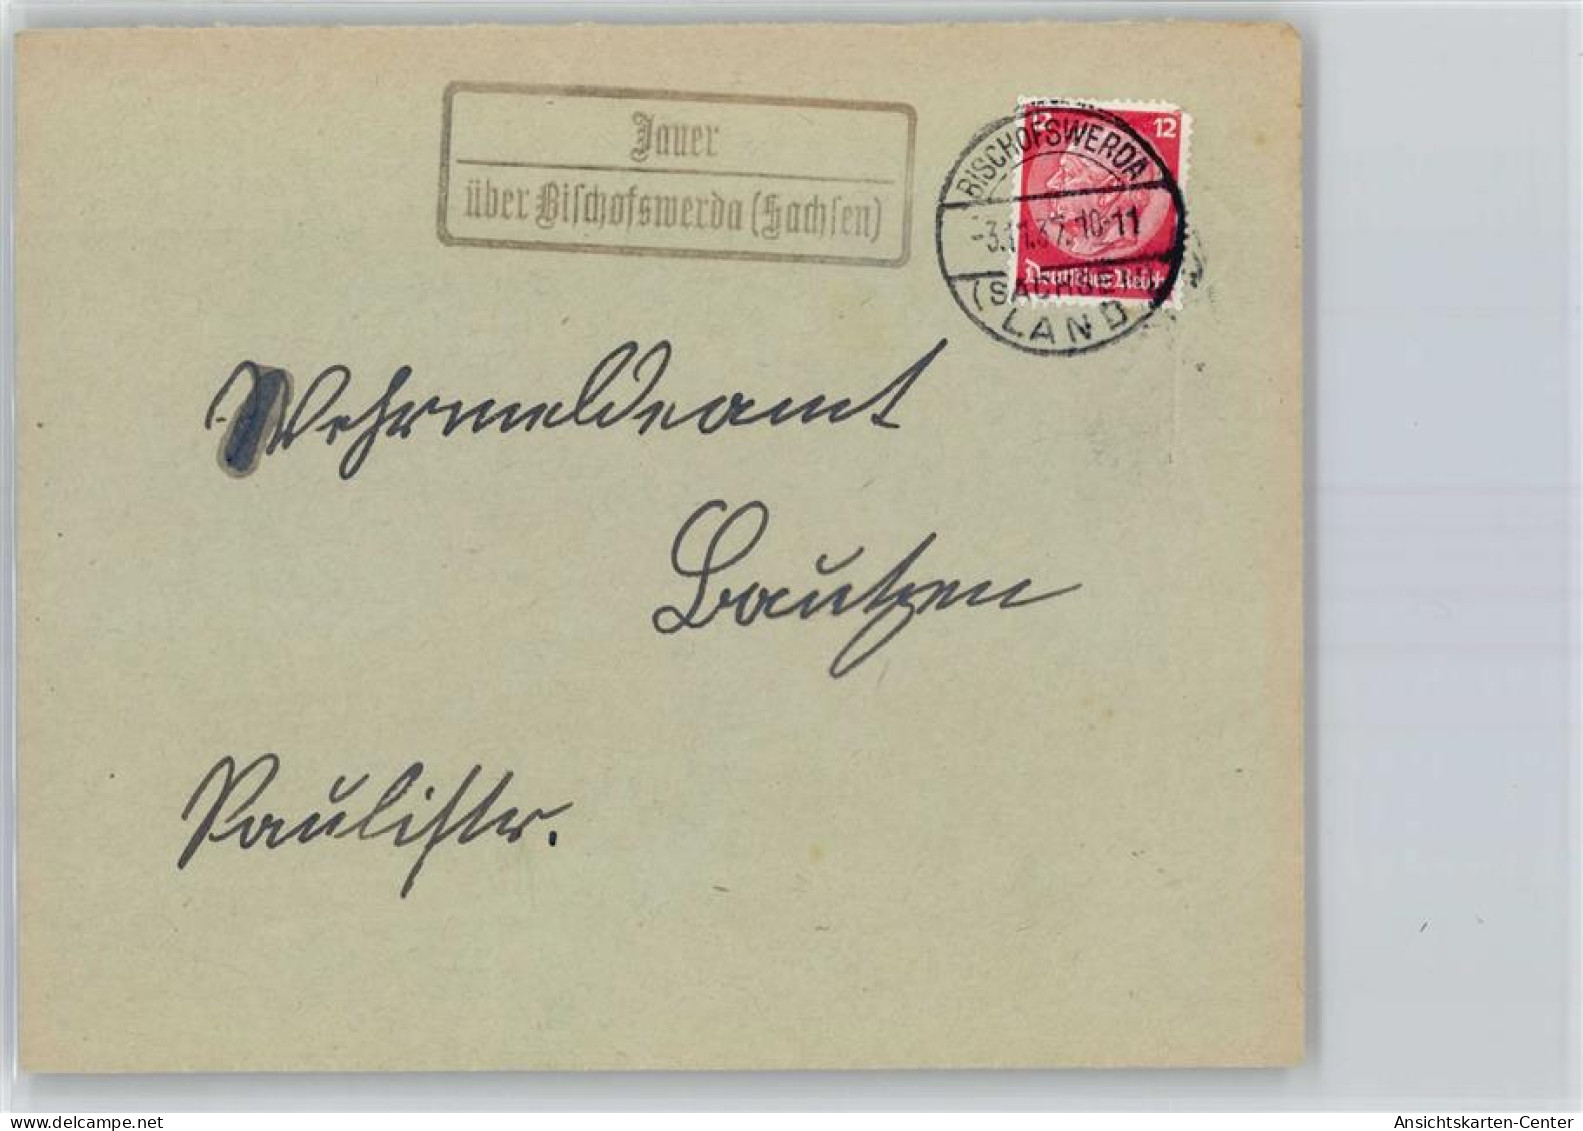 Jauer
über Bischofswerda (Sachsen)
12 12
BISCHOFSWERDA
-3.11.37.10-11
(SACHSEN)
LAND
Deutsches Reich
Wehrmeldeamt
Bautzen
Paulistr.
Ansichtskarten-Center